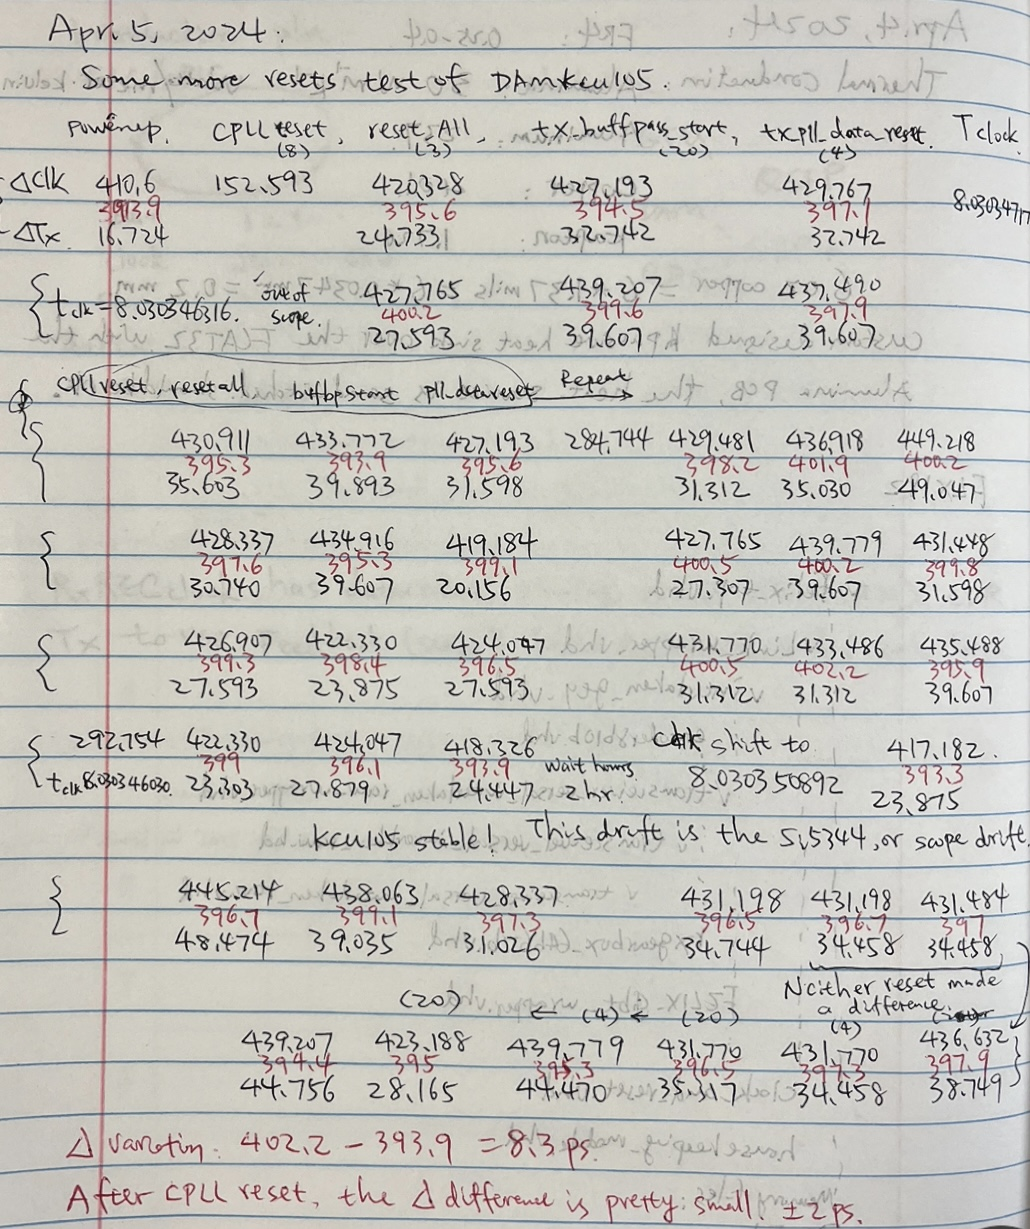 Apr. 5, 2024.
Some more resets test of DAMKCU105.
Powerup. CPLL reset, reset_All, tx_buffpass_start, txpll_data_reset. Tclock
(8) (3) (20) (4)
Δclk 410.6 152.593 420.328 427.193 429.767 8.0303471
393.9 395.6 394.5 397.1
ΔTx 16.724 24.733 32.742 32.742
tclk=8.030346316. out of scope. 427.765 439.207 437.490
400.2 399.6 397.9
27.593 39.607 39.607
CPLL reset, reset all buffbpstart pll_datareset Repeat
430.911 433.772 427.193 284.744 429.481 436.918 449.218
395.3 393.9 395.6 398.2 401.9 400.2
35.603 39.893 31.598 31.312 35.030 49.047
428.337 434.916 419.184 427.765 439.779 431.448
397.6 395.3 399.1 400.5 400.2 399.8
30.740 39.607 20.156 27.307 39.607 31.598
426.907 422.330 424.047 431.770 433.486 435.488
399.3 398.4 396.5 400.5 402.2 395.9
27.593 23.875 27.593 31.312 31.312 39.607
292.754 422.330 424.047 418.326 clk shift to 417.182.
399 396.1 393.9 wait hours 393.3
tclk 8.030346030. 23.303 27.879 24.447 2 hr. 8.030350892 23.875
KCU105 stable! This draft is the Si5344, or scope drift.
445.214 438.063 428.337 431.198 431.198 431.484
396.7 399.1 397.3 396.5 396.7 397
48.474 39.035 31.026 34.744 34.458 34.458
Neither reset made
a difference.
(20) ← (4) ← (20) (4)
439.207 423.188 439.779 431.770 431.770 436.632
394.4 395 395.3 396.5 397.3 397.9
44.756 28.165 44.470 35.317 34.458 38.749
Δ variation: 402.2 - 393.9 = 8.3 ps.
After CPLL reset, the Δ difference is pretty small. ±2ps.